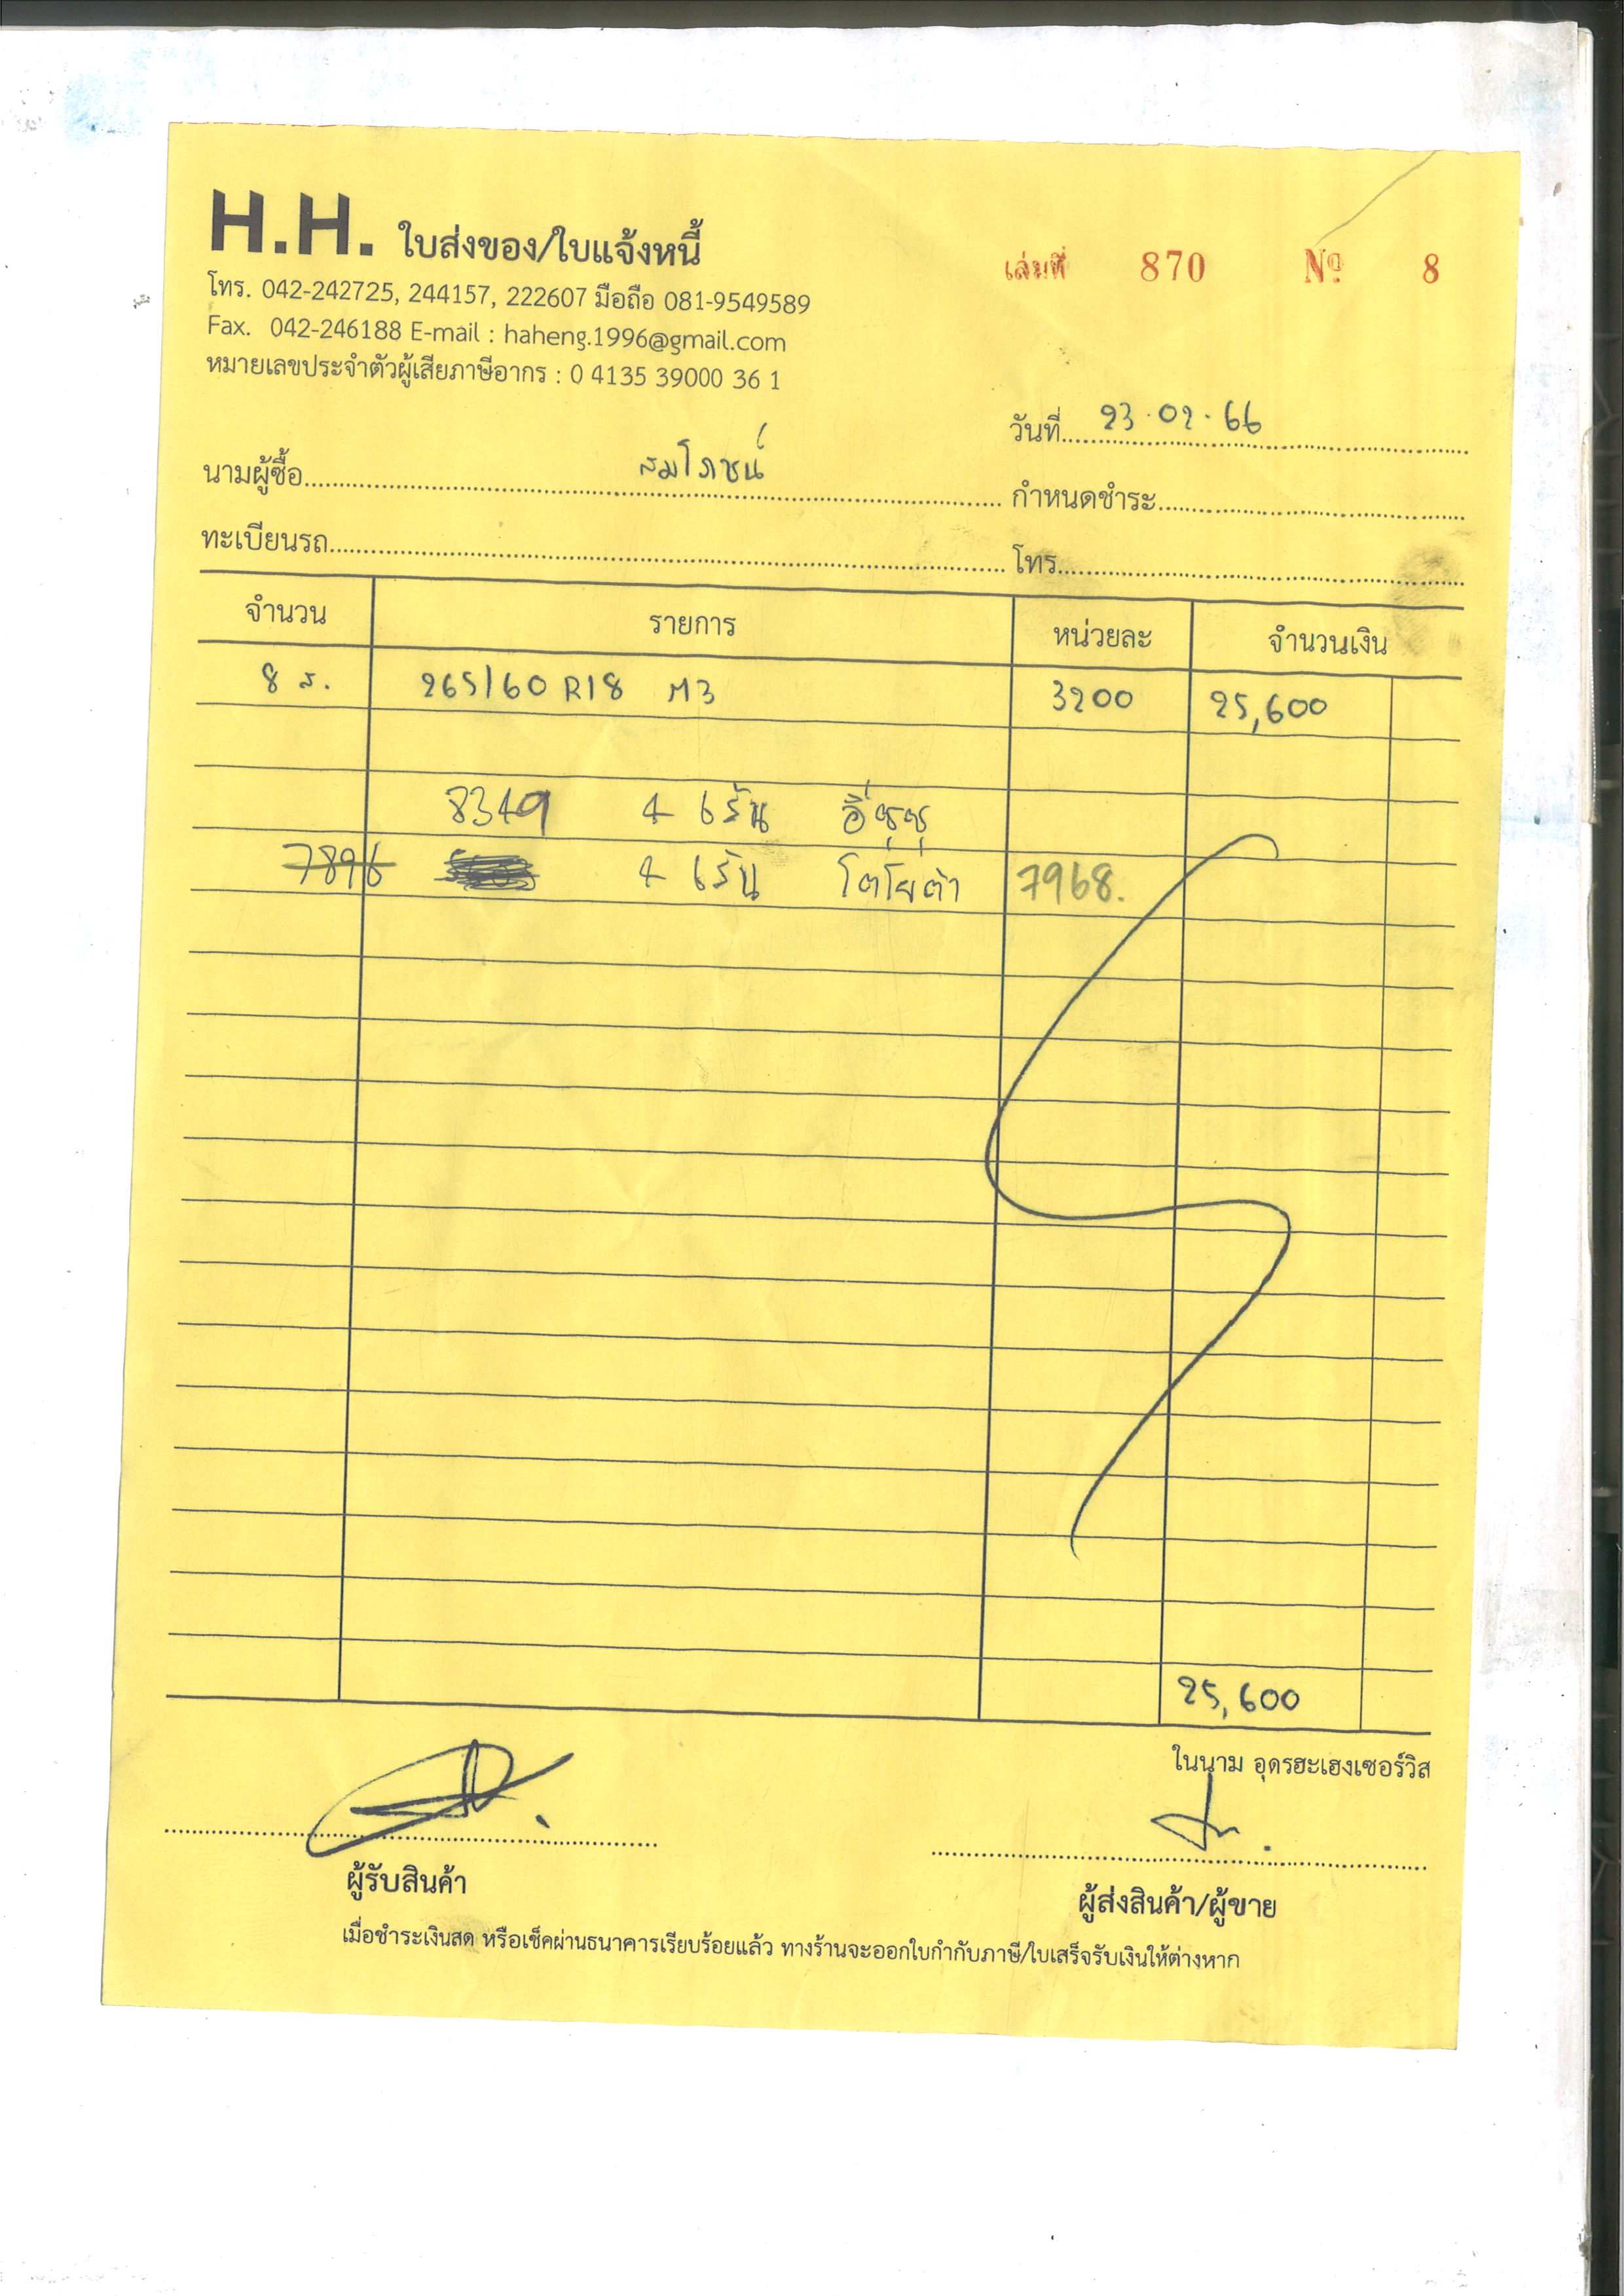 H.H. ใบส่งของ/ใบแจ้งหนี้
เล่มที่ 870 Nº 8
โทร. 042-242725, 244157, 222607 มือถือ 081-9549589
Fax. 042-246188 E-mail : haheng.1996@gmail.com
หมายเลขประจำตัวผู้เสียภาษีอากร : 0 4135 39000 36 1
วันที่ 23.02.66
นามผู้ซื้อ สมโภชน์ กำหนดชำระ
ทะเบียนรถ โทร
จำนวน รายการ หน่วยละ จำนวนเงิน
8 ส. 265/60 R18 M3 3200 25,600
8349 4 เส้น อีซูซุ
7896 4 เส้น โตโยต้า 7968.
25,600
ในนาม อุดรฮะเฮงเซอร์วิส
ผู้รับสินค้า
ผู้ส่งสินค้า/ผู้ขาย
เมื่อชำระเงินสด หรือเช็คผ่านธนาคารเรียบร้อยแล้ว ทางร้านจะออกใบกำกับภาษี/ใบเสร็จรับเงินให้ต่างหาก